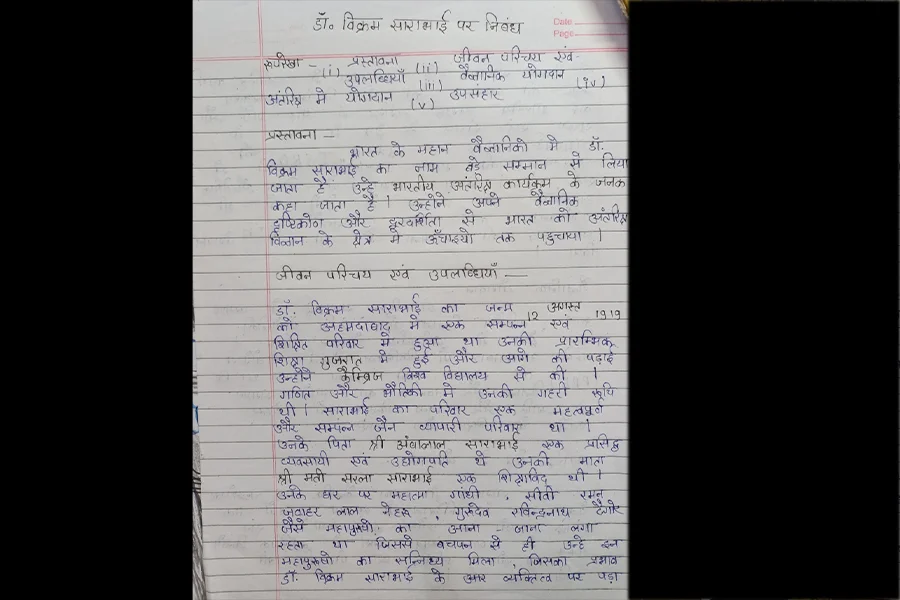 डॉ. विक्रम साराभाई पर निबंध
Date
Page
रूपरेखा - (i) प्रस्तावना (ii) जीवन परिचय एवं
उपलब्धियाँ (iii) वैज्ञानिक योगदान (iv)
अंतरिक्ष मे योगदान (v) उपसंहार
प्रस्तावना -
भारत के महान वैज्ञानिको मे डॉ.
विक्रम साराभाई का नाम बडे सम्मान से लिया
जाता है उन्हे भारतीय अंतरिक्ष कार्यक्रम के जनक
कहा जाता है। उन्होने अपने वैज्ञानिक
दृष्टिकोण और दूरदर्शिता से भारत को अंतरिक्ष
विज्ञान के क्षेत्र मे ऊँचाइयो तक पहुचाया।
जीवन परिचय एवं उपलब्धियाँ -
डॉ. विक्रम साराभाई का जन्म 12 अगस्त 1919
को अहमदाबाद मे एक सम्पन्न एवं
शिक्षित परिवार मे हुआ था उनकी प्रारम्भिक
शिक्षा गुजरात मे हुई और आगे की पढाई
उन्होने कैम्ब्रिज विश्व विद्यालय से की।
गणित और भौतिकी मे उनकी गहरी रूचि
थी। साराभाई का परिवार एक महत्वपूर्ण
और सम्पन्न जैन व्यापारी परिवार था।
उनके पिता श्री अंबालाल साराभाई एक प्रसिद्ध
व्यवसायी एवं उद्योगपति थे उनकी माता
श्री मती सरला साराभाई एक शिक्षाविद थी।
उनके घर पर महात्मा गांधी, सीवी रमन,
जवाहर लाल नेहरू, गुरूदेव रविन्द्रनाथ टैगोर
जैसे महापुरुषो का आना - जाना लगा
रहता था जिससे बचपन से ही उन्हे इन
महापुरुषो का सानिध्य मिला जिसका प्रभाव
डॉ. विक्रम साराभाई के व्यक्तित्व पर पड़ा